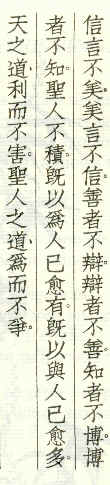 信言不美美言不信善者不辯。辯者不善。知者不博博
者不知。聖人不積。旣以爲人己愈有。旣以與人己愈多。
天之道、利而不害。聖人之道、爲而不爭。